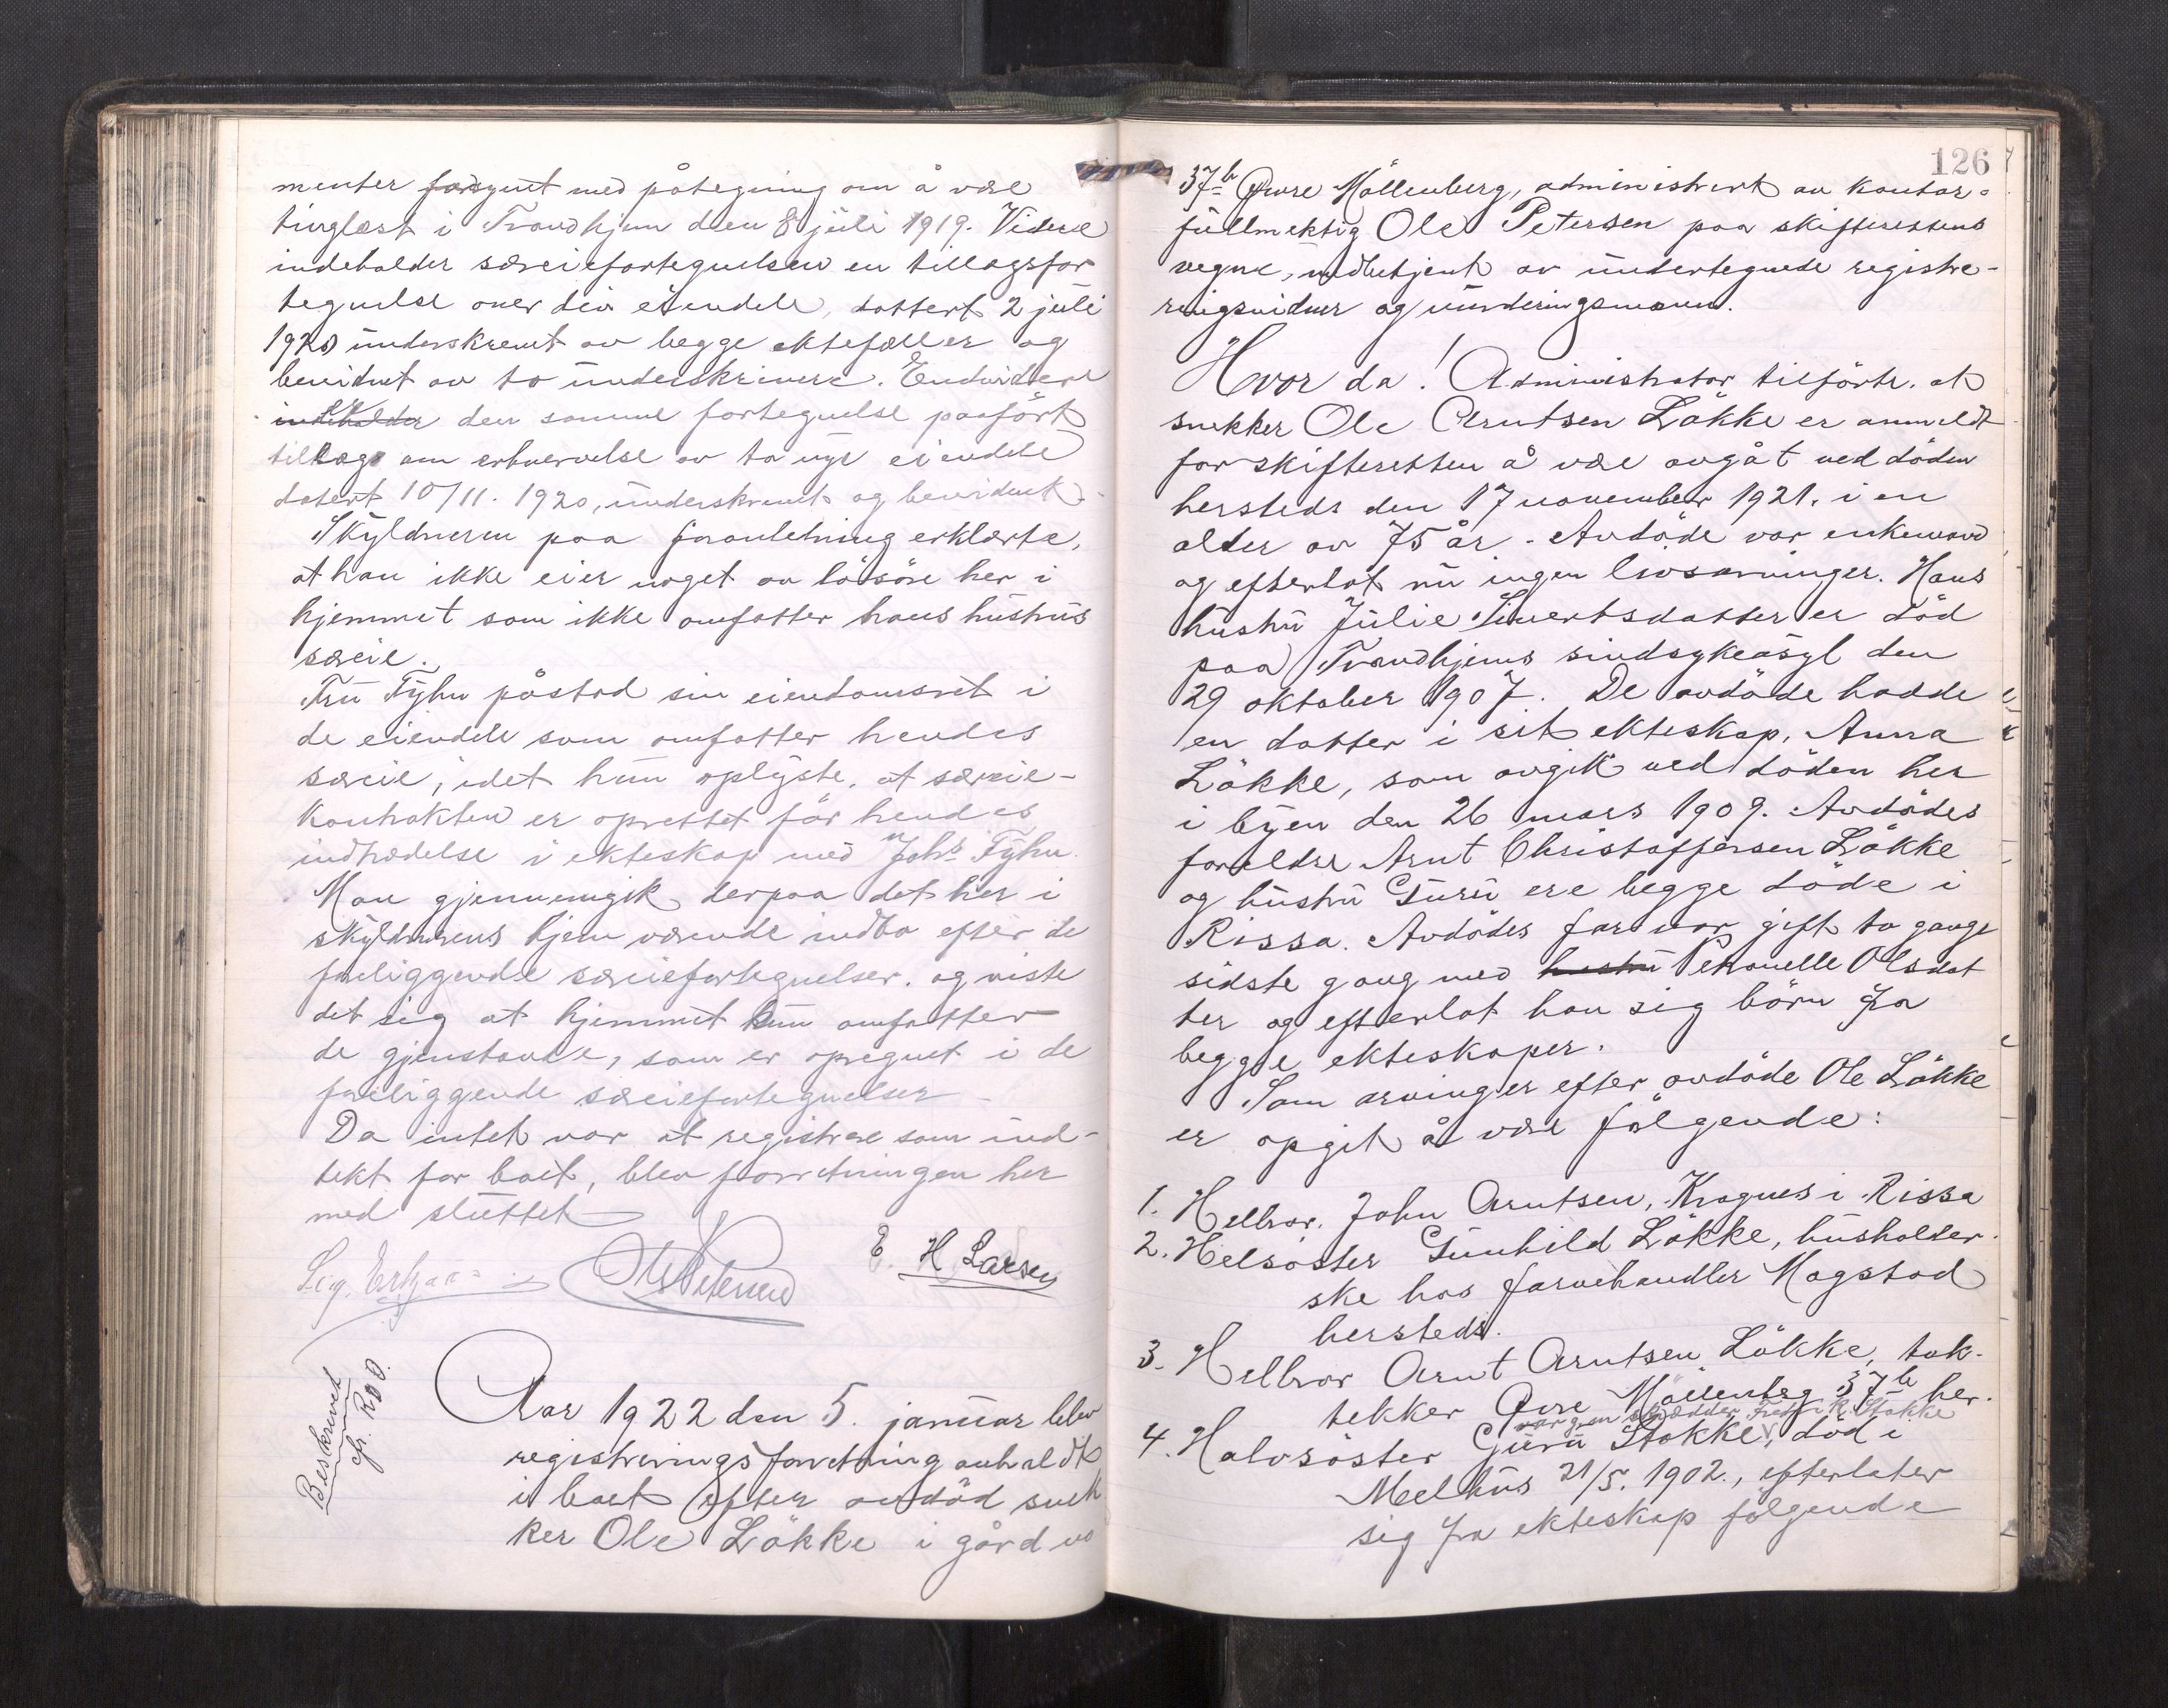 menter forsynet med påtegning om å være
tinglæst i Trondhjem den 8 juli 1919. Videre
indeholder særeiefortegnelsen en tillægsfor
tegnelse over div eiendele, dattert 2 juli
1920 underskrevet av begge ektefæller og
bevidnet av to underskrivere. Endvidere
indeholder den samme fortegnelse paaført
tillæg om erhvervelse av to nye eiendele
datert 10/11. 1920, underskrevet og bevidnet.
Skyldneren paa foranledning erklærte,
at han ikke eier noget av løsøre her i
hjemmet som ikke omfatter hans hustrus
særeie.
Fru Tyhn påstod sin eiendomsret i
de eiendele som omfatter hendes
særeie, idet hun oplyste, at særeie-
kontrakten er oprettet før hendes
indtrædelse i ekteskap med Johs Tyhn.
Man gjennemgik derpaa det her i
skyldnerens hjem værende indbo efter de
foreliggende særeiefortegnelser, og viste
det sig at hjemmet kun omfatter
de gjenstande, som er opregnet i de
foreliggende særeiefortegnelser -
Da intet var at registrere som ind-
tekt for boet, blev forretningen her
med sluttet
Sig. Erkjær Ole Petersen E. H Larsen
Beskrevet
fr. R00.
Aar 1922 den 5. januar blev
registreringsforretning avholdt
i boet efter avdød snek
ker Ole Løkke i gård no
126
37b Øvre Møllenberg, administrert av kontor-
fullmektig Ole Petersen paa skifterettens
vegne, medbetjent av undertegnede registre-
ringsvidner og vurderingsmænd.
Hvor da! Administrator tilførte, at
snekker Ole Arntsen Løkke er anmeldt
for skifteretten å være avgåt ved døden
hersteds den 17 november 1921. i en
alder av 75 år. - Avdøde var enkemand
og efterlot nu ingen livsarvinger. Hans
hustru Julie Sivertsdatter er død
paa Trondhjems sindsykeasyl den
29 oktober 1907. De avdøde hadde
en datter i sit ekteskap, Anna
Løkke, som avgik ved døden her
i byen den 26 mars 1909. Avdødes
foreldre Arnt Christoffersen Løkke
og hustru Guru ere begge døde i
Rissa. Avdødes far var gift to gange
sidste gang med hustru Petronelle Olsdat
ter og efterlot han sig børn fra
begge ekteskaper.
Som arvinger efter avdøde Ole Løkke
er opgit å være følgende:
1. Helbror, John Arntsen, Kragnes i Rissa
2. Helsøster Gunhild Løkke, husholder
ske hos farvehandler Magstad
hersteds.
3. Helbror Arnt Arntsen Løkke, tak-
tekker Øvre Møllenberg 37b her.
var gm skrædder Fredrik R. Stokke
4. Halvsøster Guru Stokke, død i
Melhus 21/5. 1902., efterlater
sig fra ekteskap følgende